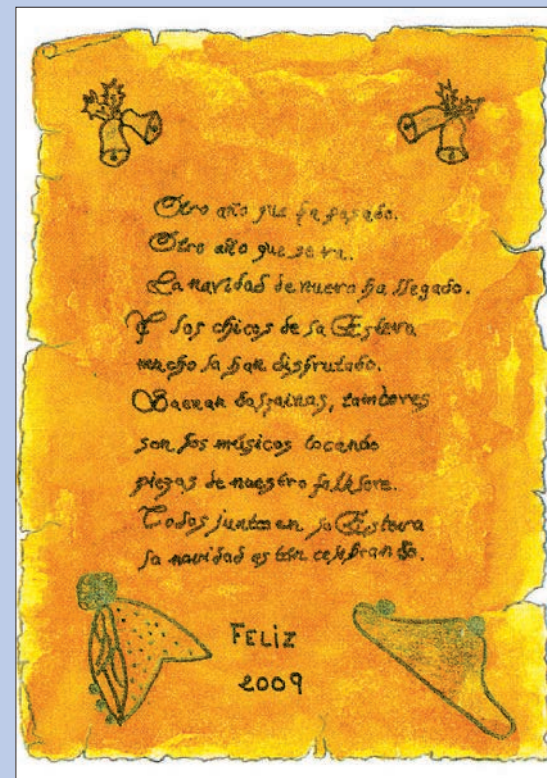 Otro año que ha pasado.
Otro año que se va.
La navidad de nuevo ha llegado.
Y los chicos de la Esteva
mucho la han disfrutado.
Suenan dulzainas, tambores
son los músicos tocando
piezas de nuestro folklore.
Todos juntos en la Esteva
la navidad están celebrando.
FELIZ
2009